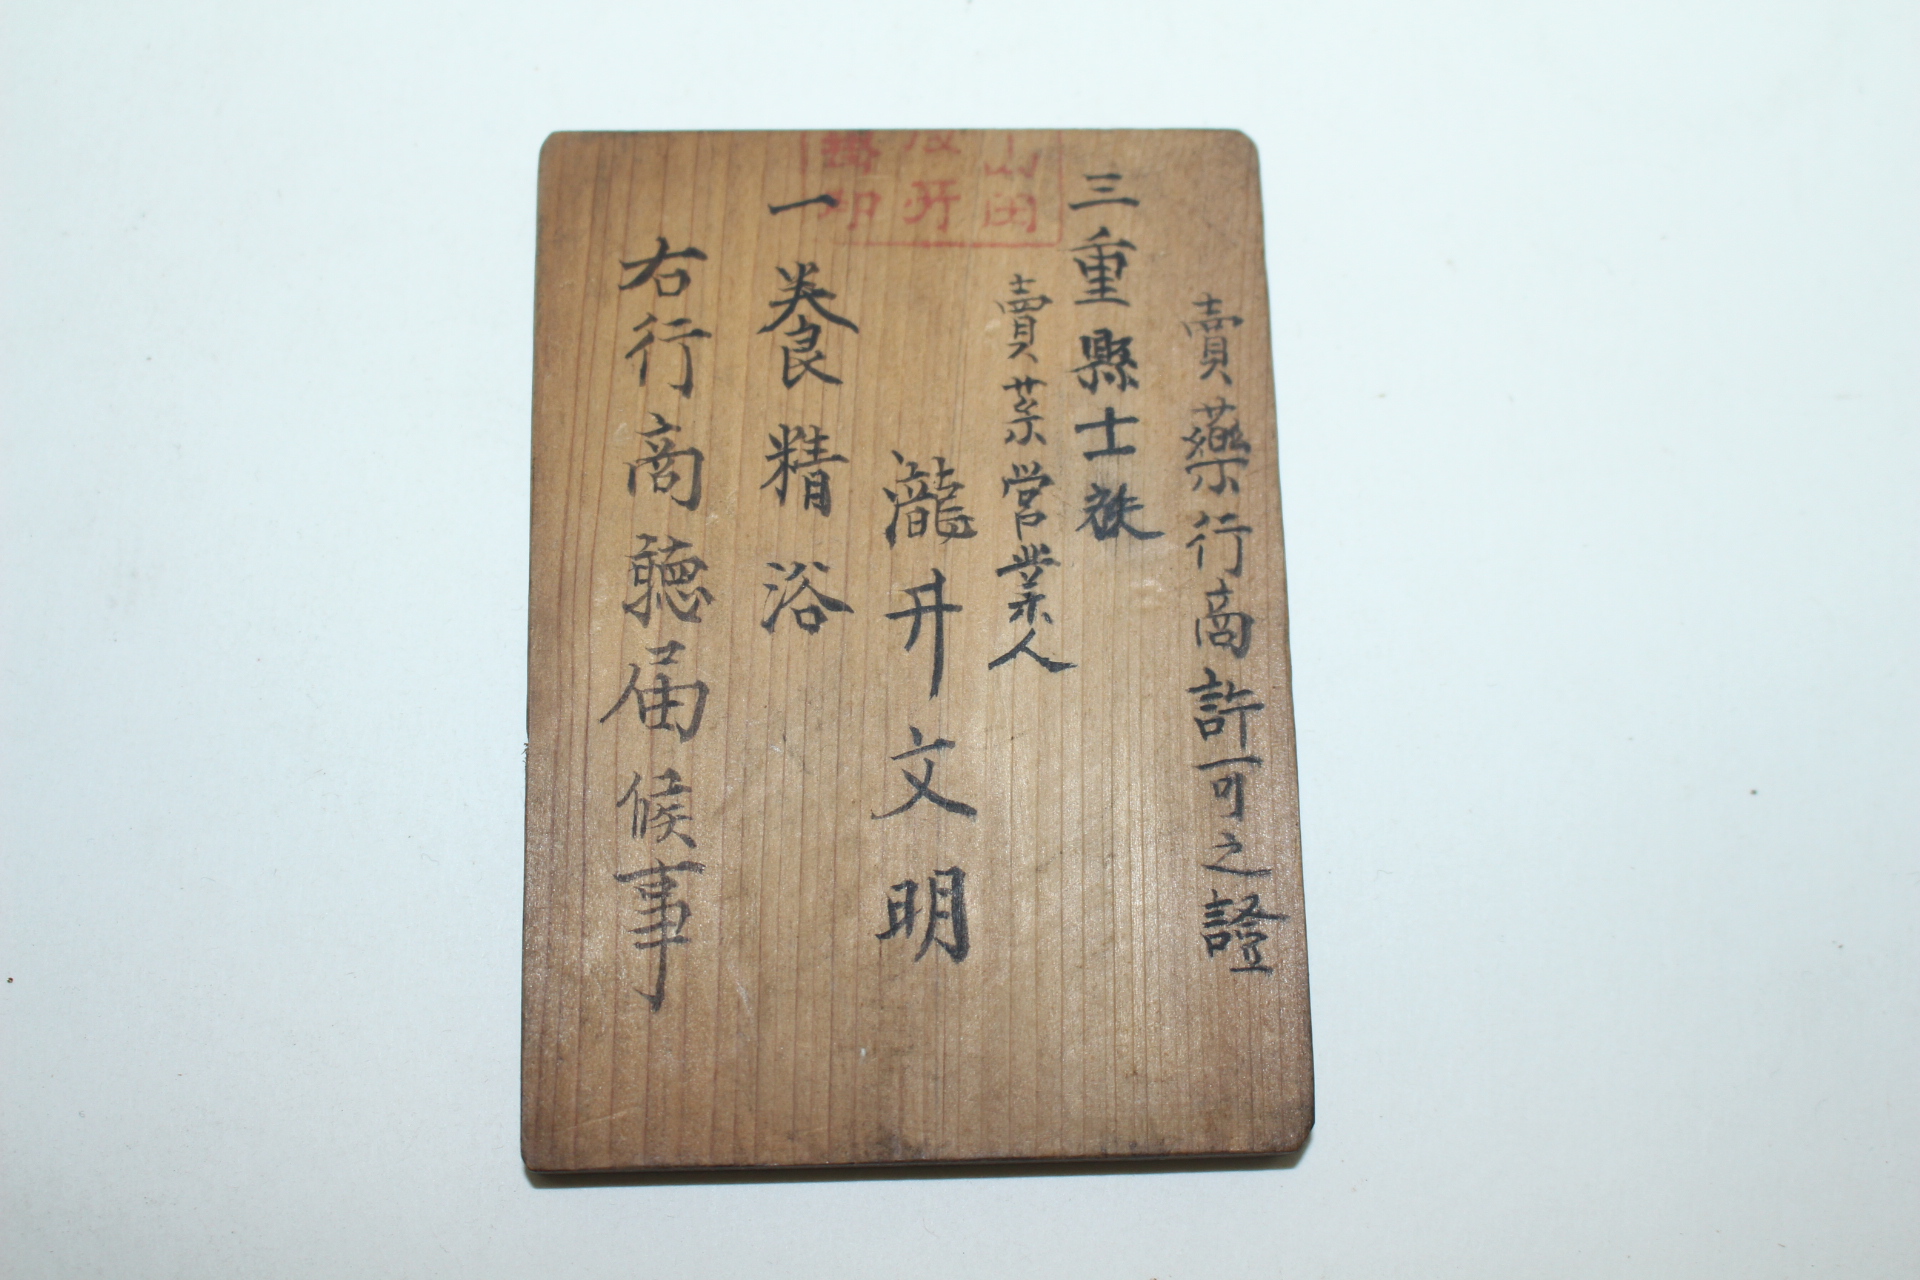 賣藥行商許可之證
三重縣士族
賣薬営業人
瀧井文明
一養精浴
右行商聴届候事
山田
印